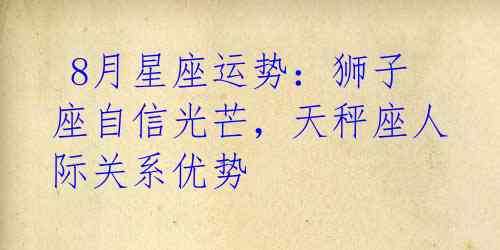 8月星座运势：狮子
座自信光芒，天秤座人
际关系优势